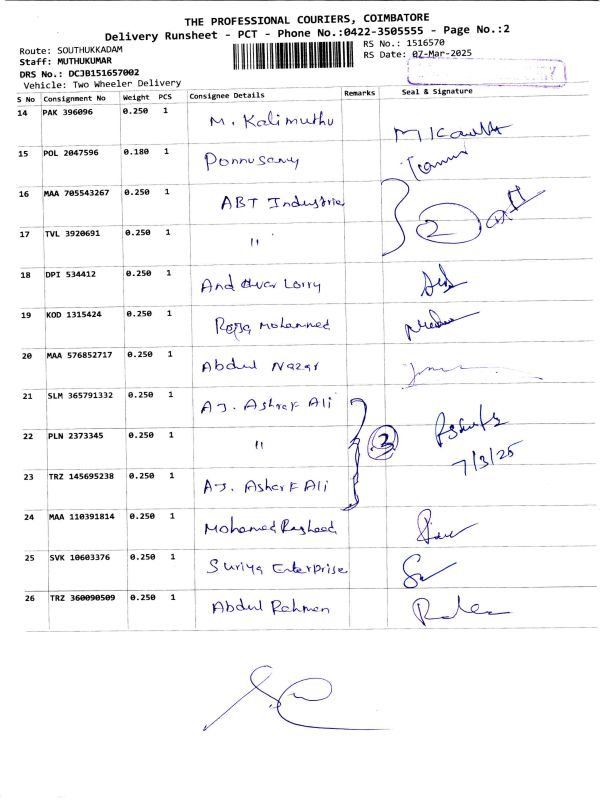 THE PROFESSIONAL COURIERS, COIMBATORE
Delivery Runsheet - PCT - Phone No.:0422-3505555 - Page No.:2
Route: SOUTHUKKADAM
RS No.: 1516570
Staff: MUTHUKUMAR
RS Date: 07-Mar-2025
DRS No.: DCJB151657002
Vehicle: Two Wheeler Delivery
S No Consignment No Weight PCS Consignee Details Remarks Seal & Signature
14 PAK 396096 0.250 1 M. Kalimuthu
15 POL 2047596 0.180 1 Ponnusamy
16 MAA 705543267 0.250 1 ABT Industries
17 TVL 3920691 0.250 1 " 2
18 DPI 534412 0.250 1 Andavar Lorry
19 KOD 1315424 0.250 1 Raja Mohammed
20 MAA 576852717 0.250 1 Abdul Nazar
21 SLM 365791332 0.250 1 A.J. Ashraf Ali
22 PLN 2373345 0.250 1 " 3
7/3/25
23 TRZ 145695238 0.250 1 A.J. Asharf Ali
24 MAA 110391814 0.250 1 Mohamed Rasheed
25 SVK 10603376 0.250 1 Suriya Enterprise
26 TRZ 360090509 0.250 1 Abdul Rahman